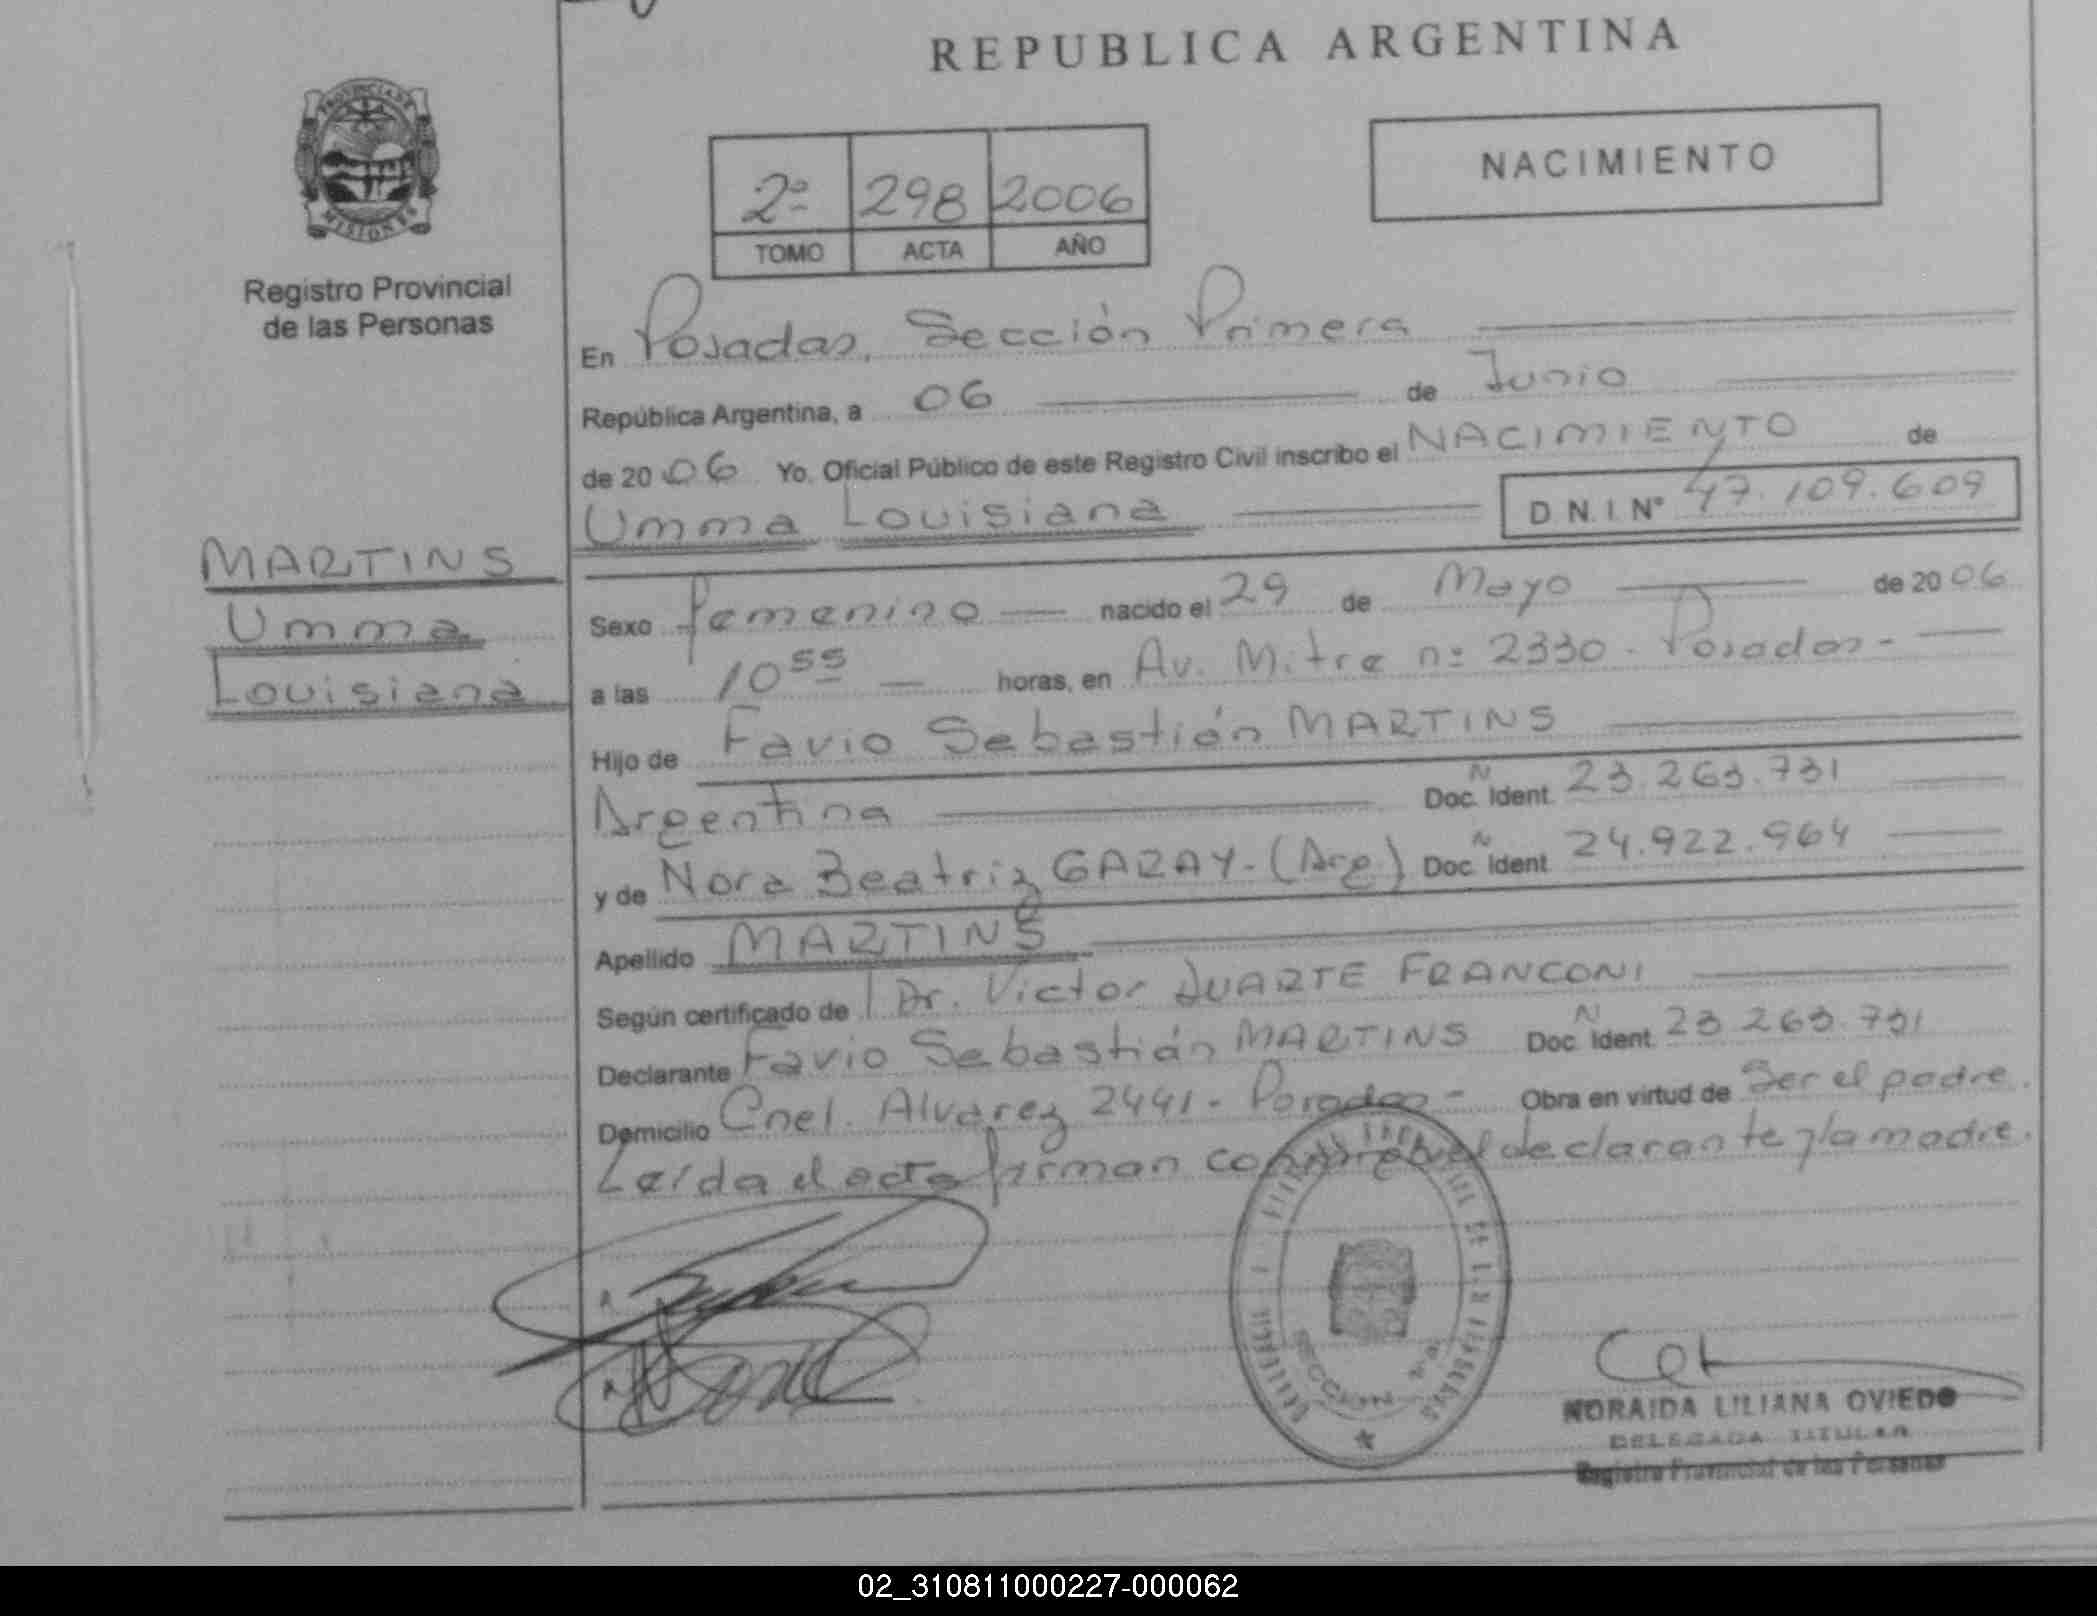 REPUBLICA ARGENTINA
PROVINCIA DE
MISIONES
Registro Provincial
de las Personas
NACIMIENTO
2º 298 2006
TOMO ACTA AÑO
En Posadas, Sección Primera
República Argentina, a 06 de Junio
de 2006 Yo. Oficial Público de este Registro Civil inscribo el NACIMIENTO de
Umma Louisiana D N. I. Nº 47.109.609
MARTINS
Umma
Louisiana
Sexo femenino nacido el 29 de Mayo de 2006
a las 10 55 horas, en Av. Mitre nº 2330 - Posadas -
Hijo de Favio Sebastián MARTINS
Argentina Doc. Ident. N 23.263.731
y de Nora Beatriz GARAY - (Arg) Doc. Ident. N 24.922.964
Apellido MARTINS
Según certificado de Dr. Victor DUARTE FRANCONI
Declarante Favio Sebastián MARTINS Doc. Ident. N 23 263.731
Domicilio Cnel. Alvarez 2441 - Posadas - Obra en virtud de Ser el padre.
Leída el acta firman conmigo el declarante y la madre.
SECCION 1ra.
NORAIDA LILIANA OVIEDO
DELEGADA TITULAR
Registro Provincial de las Personas
02_310811000227-000062